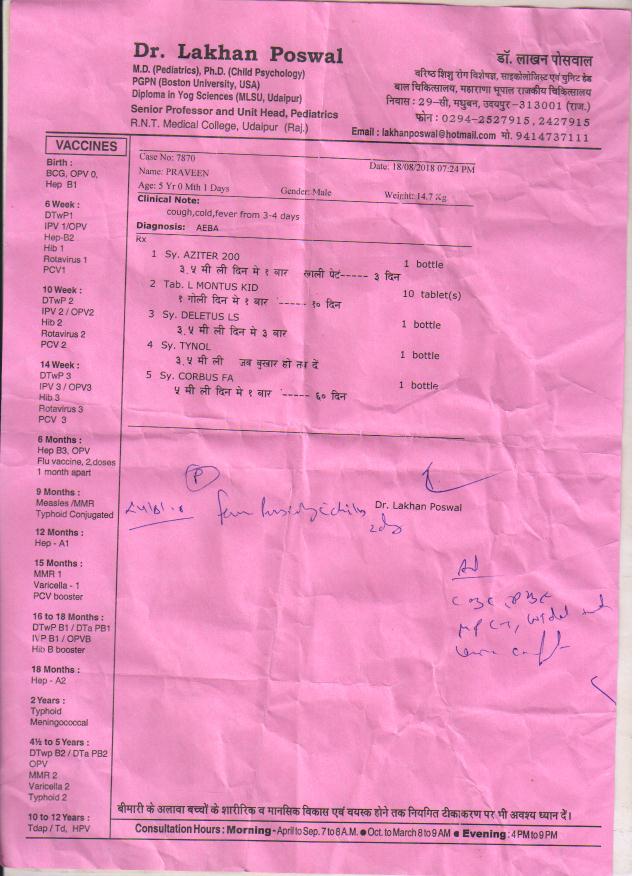 Dr. Lakhan Poswal
M.D. (Pediatrics), Ph.D. (Child Psychology)
PGPN (Boston University, USA)
Diploma in Yog Sciences (MLSU, Udaipur)
Senior Professor and Unit Head, Pediatrics
R.N.T. Medical College, Udaipur (Raj.)
डॉ. लाखन पोसवाल
वरिष्ठ शिशु रोग विशेषज्ञ, साइकोलोजिस्ट एवं युनिट हेड
बाल चिकित्सालय, महाराणा भूपाल राजकीय चिकित्सालय
निवास : 29-सी, मधुबन, उदयपुर-313001 (राज.)
फोन : 0294-2527915, 2427915
Email : lakhanposwal@hotmail.com मो. 9414737111
VACCINES
Birth :
BCG, OPV 0,
Hep B1
6 Week :
DTwP1
IPV 1/OPV
Hep-B2
Hib 1
Rotavirus 1
PCV1
10 Week :
DTwP 2
IPV 2 / OPV2
Hib 2
Rotavirus 2
PCV 2
14 Week :
DTwP 3
IPV 3 / OPV3
Hib 3
Rotavirus 3
PCV 3
6 Months :
Hep B3, OPV
Flu vaccine, 2,doses
1 month apart
9 Months :
Measles /MMR
Typhoid Conjugated
12 Months :
Hep - A1
15 Months :
MMR 1
Varicella - 1
PCV booster
16 to 18 Months :
DTwP B1 / DTa PB1
IVP B1 / OPVB
Hib B booster
18 Months :
Hep - A2
2 Years :
Typhoid
Meningococcal
4½ to 5 Years :
DTwp B2 / DTa PB2
OPV
MMR 2
Varicella 2
Typhoid 2
10 to 12 Years :
Tdap / Td, HPV
Case No: 7870 Date: 18/08/2018 07:24 PM
Name: PRAVEEN
Age: 5 Yr 0 Mth 1 Days Gender: Male Weight: 14.7 Kg
Clinical Note:
cough,cold,fever from 3-4 days
Diagnosis: AEBA
Rx
1 Sy. AZITER 200 1 bottle
३.५ मी ली दिन मे १ बार खाली पेट----- ३ दिन
2 Tab. L MONTUS KID 10 tablet(s)
१ गोली दिन मे १ बार ----- १० दिन
3 Sy. DELETUS LS 1 bottle
३.५ मी ली दिन मे ३ बार
4 Sy. TYNOL 1 bottle
३.५ मी ली जब बुखार हो तब दें
5 Sy. CORBUS FA 1 bottle
५ मी ली दिन मे १ बार ----- ६० दिन
P
Dr. Lakhan Poswal
बीमारी के अलावा बच्चों के शारीरिक व मानसिक विकास एवं वयस्क होने तक नियमित टीकाकरण पर भी अवश्य ध्यान दें।
Consultation Hours : Morning - April to Sep. 7 to 8 A.M. ● Oct. to March 8 to 9 AM ● Evening : 4 PM to 9 PM